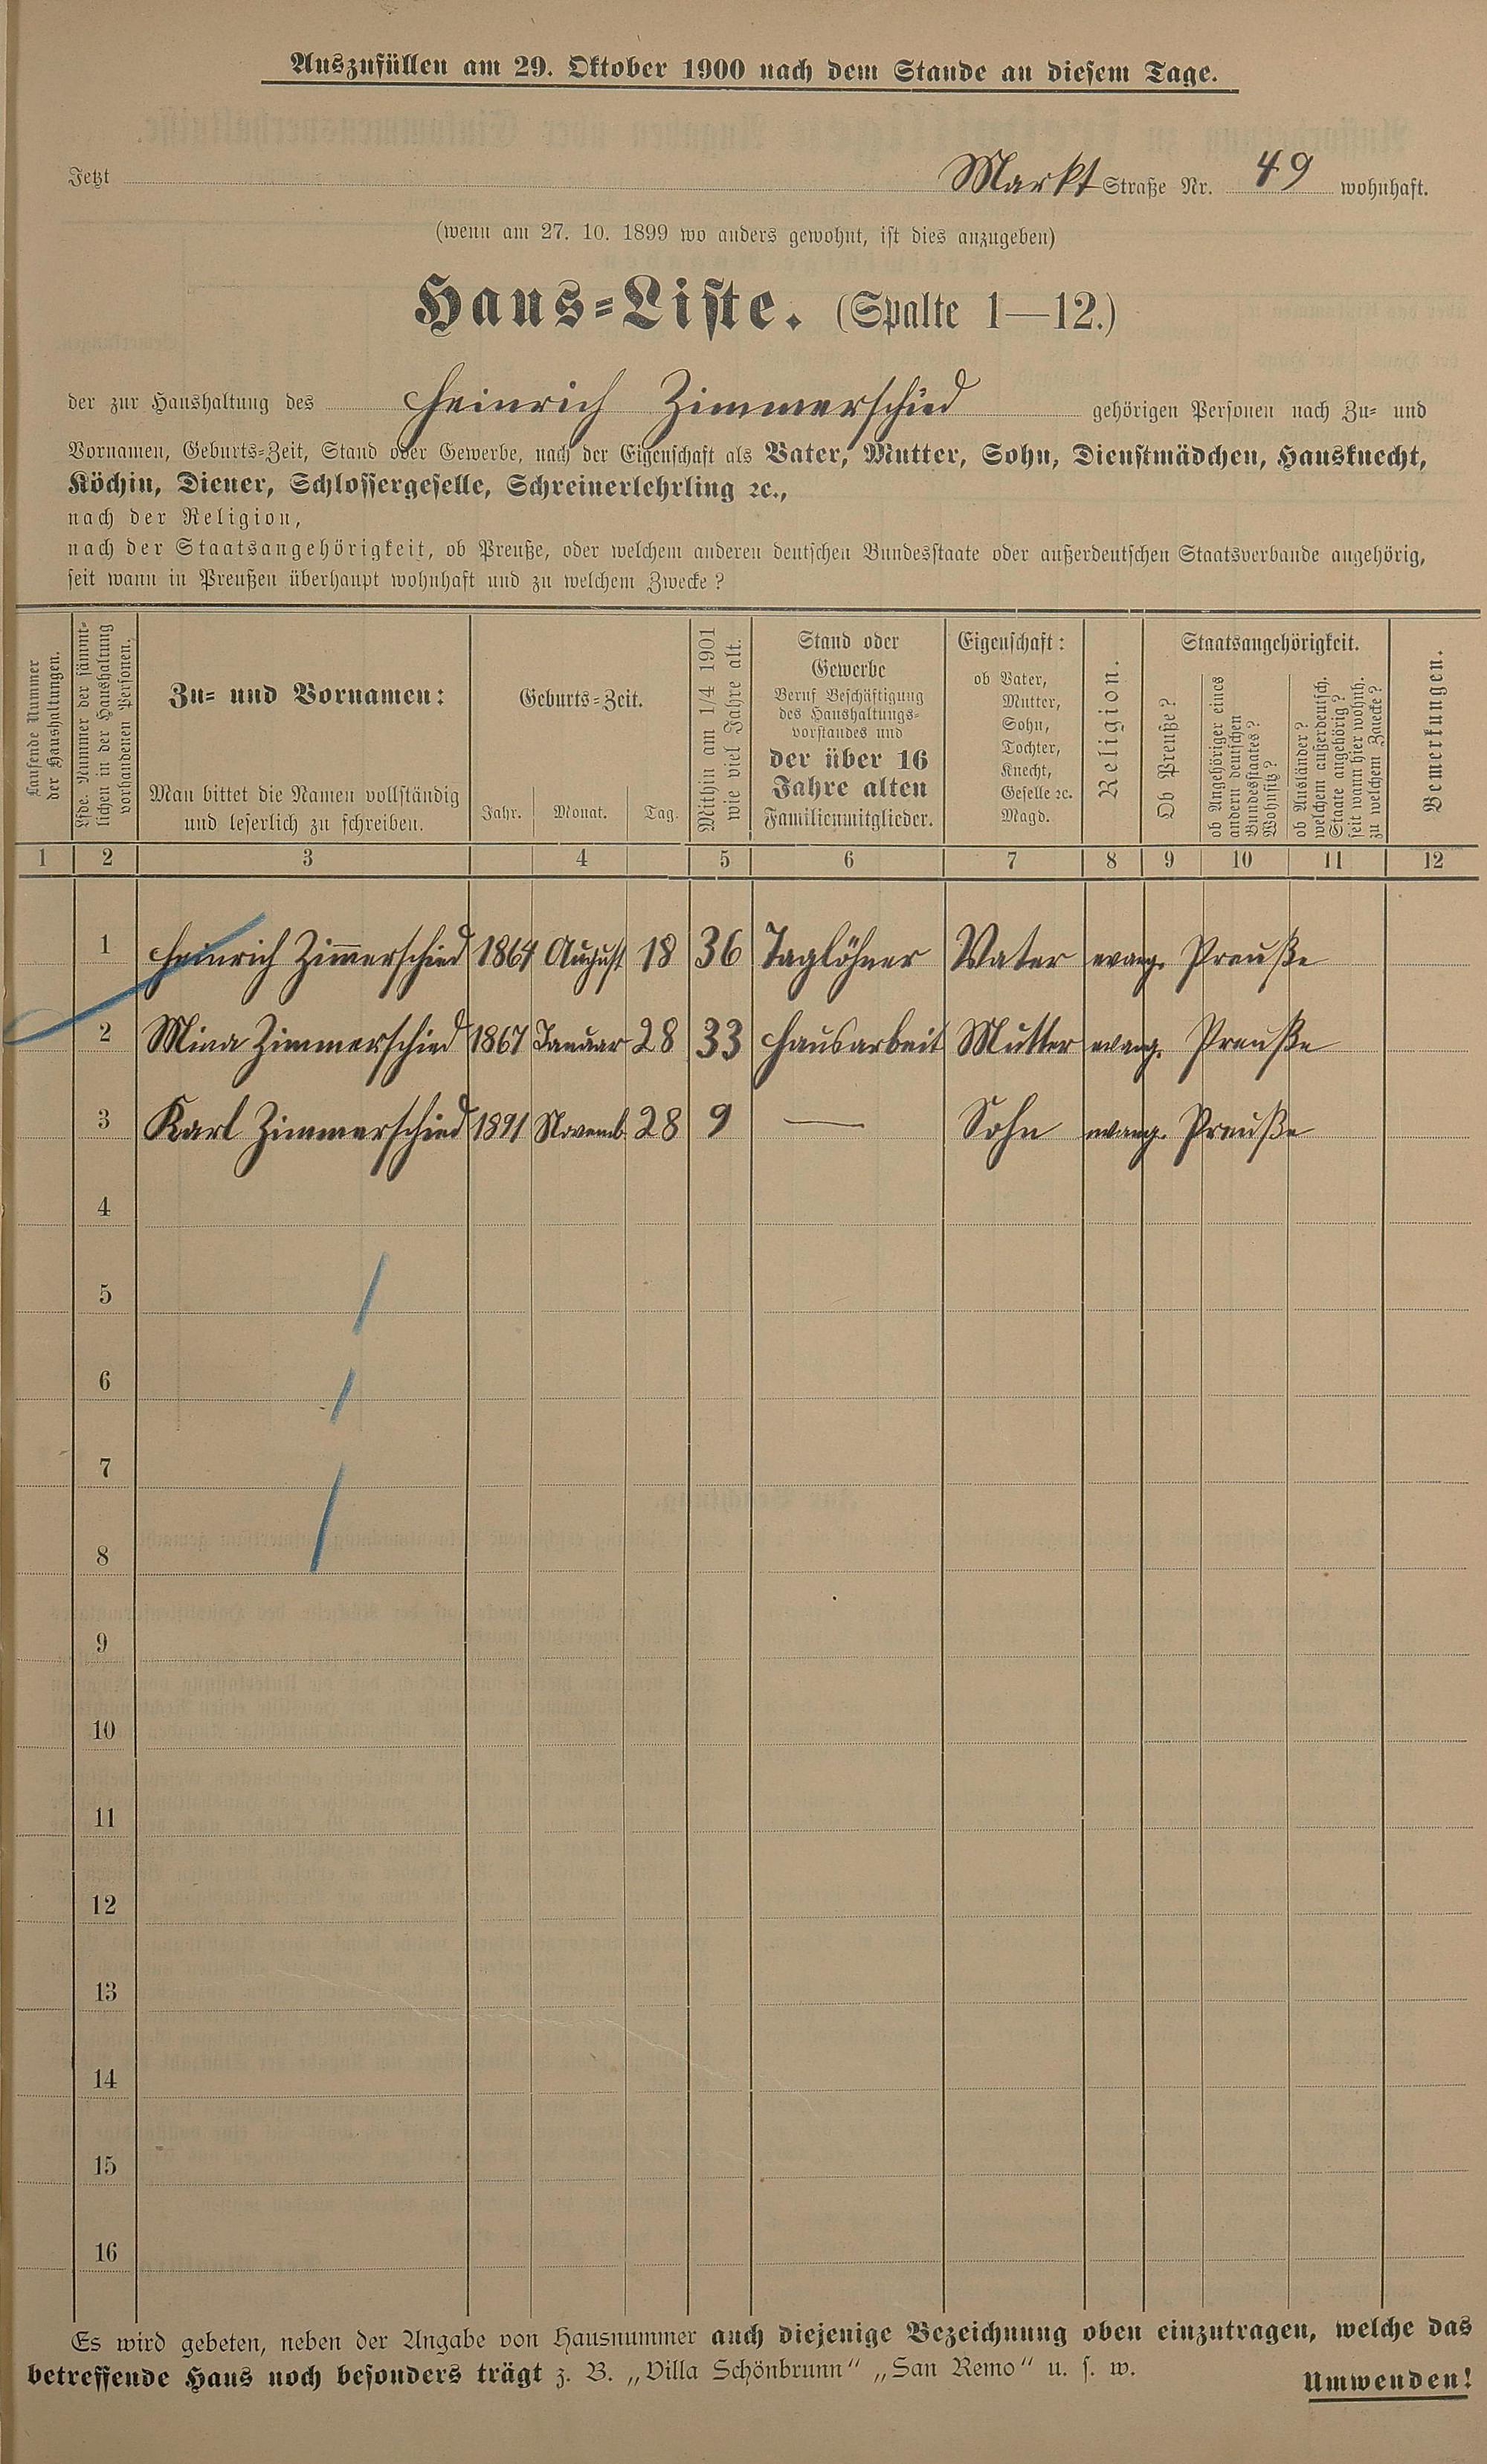 Auszufüllen am 29. Oktober 1900 nach dem Stande an diesem Tage.
Jetzt Markt Straße Nr. 49 wohnhaft.
(wenn am 27. 10. 1899 wo anders gewohnt, ist dies anzugeben)
Haus-Liste. (Spalte 1—12.)
der zur Haushaltung des Heinrich Zimmerschied gehörigen Personen nach Zu- und
Vornamen, Geburts-Zeit, Stand oder Gewerbe, nach der Eigenschaft als Vater, Mutter, Sohn, Dienstmädchen, Hausknecht,
Köchin, Diener, Schlossergeselle, Schreinerlehrling ꝛc.,
nach der Religion,
nach der Staatsangehörigkeit, ob Preuße, oder welchem anderen deutschen Bundesstaate oder außerdeutschen Staatsverbande angehörig,
seit wann in Preußen überhaupt wohnhaft und zu welchem Zwecke?
Laufende Nummer
der Haushaltungen.
Lfde. Nummer der sämmt-
lichen in der Haushaltung
vorhandenen Personen.
Zu- und Vornamen:
Man bittet die Namen vollständig
und leserlich zu schreiben.
Geburts-Zeit.
Jahr. Monat. Tag.
Mithin am 1/4 1901
wie viel Jahre alt.
Stand oder
Gewerbe
Beruf Beschäftigung
des Haushaltungs-
vorstandes und
der über 16
Jahre alten
Familienmitglieder.
Eigenschaft:
ob Vater,
Mutter,
Sohn,
Tochter,
Knecht,
Geselle ꝛc.
Magd.
Religion.
Staatsangehörigkeit.
Ob Preuße?
ob Angehöriger eines
andern deutschen
Bundesstaates?
Wohnsitz?
ob Ausländer?
welchem außerdeutsch.
Staate angehörig?
seit wann hier wohnh.
zu welchem Zwecke?
Bemerkungen.
1 2 3 4 5 6 7 8 9 10 11 12
1 Heinrich Zim̅erschied 1864 August 18 36 Taglöhner Vater evang. Preuße
2 Mina Zimmerschied 1867 Januar 28 33 Hausarbeit Mutter evang. Preuße
3 Karl Zimmerschied 1891 Novemb. 28 9 — Sohn evang. Preuße
4
5
6
7
8
9
10
11
12
13
14
15
16
Es wird gebeten, neben der Angabe von Hausnummer auch diejenige Bezeichnung oben einzutragen, welche das
betreffende Haus noch besonders trägt z. B. „Villa Schönbrunn“ „San Remo“ u. s. w.
Umwenden!